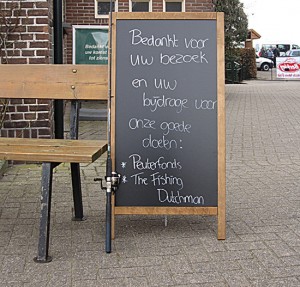 Bedankt voor
uw bezoek
en uw
bijdrage voor
onze goede
doelen:
* Peuterfonds
* The Fishing
Dutchman
Bedankt